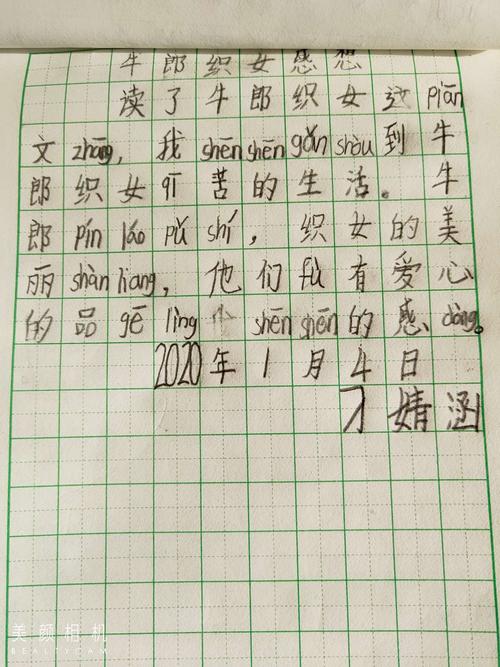 牛郎织女感想
读了牛郎织女这piān
文zhāng，我shēnshēngǎnshòu到牛
郎织女qī苦的生活。牛
郎pín láo pǔ shí，织女的美
丽shàn liang，他们fù有爱心
的品gē lìng 小 shēn shēn的感dòng。
2020年1月4日
刁婧涵
美颜相机
BEAUTYCAM